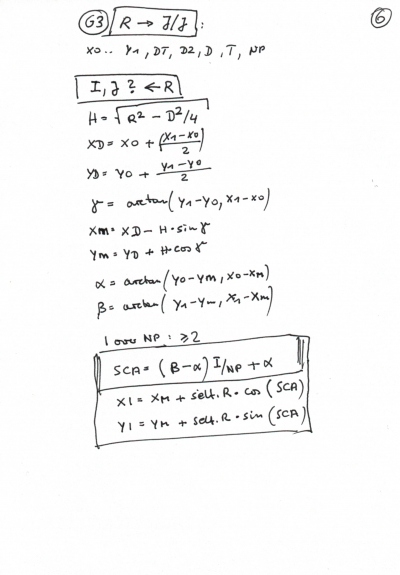 G3 R → I/J : 6
X0.. Y1, DT, D2, D, T, NP
I, J ? ← R
H = √R² - D²/4
XD = X0 + (X1-X0)/2
YD = Y0 + Y1-Y0/2
γ = arctan(Y1-Y0, X1-X0)
XM = XD - H·sin γ
YM = YD + H·cos γ
α = arctan(Y0-YM, X0-XM)
β = arctan(Y1-YM, X1-XM)
I over NP : ≥2
SCA = (β-α) I/NP + α
XI = XM + self.R·cos(SCA)
YI = YM + self.R·sin(SCA)